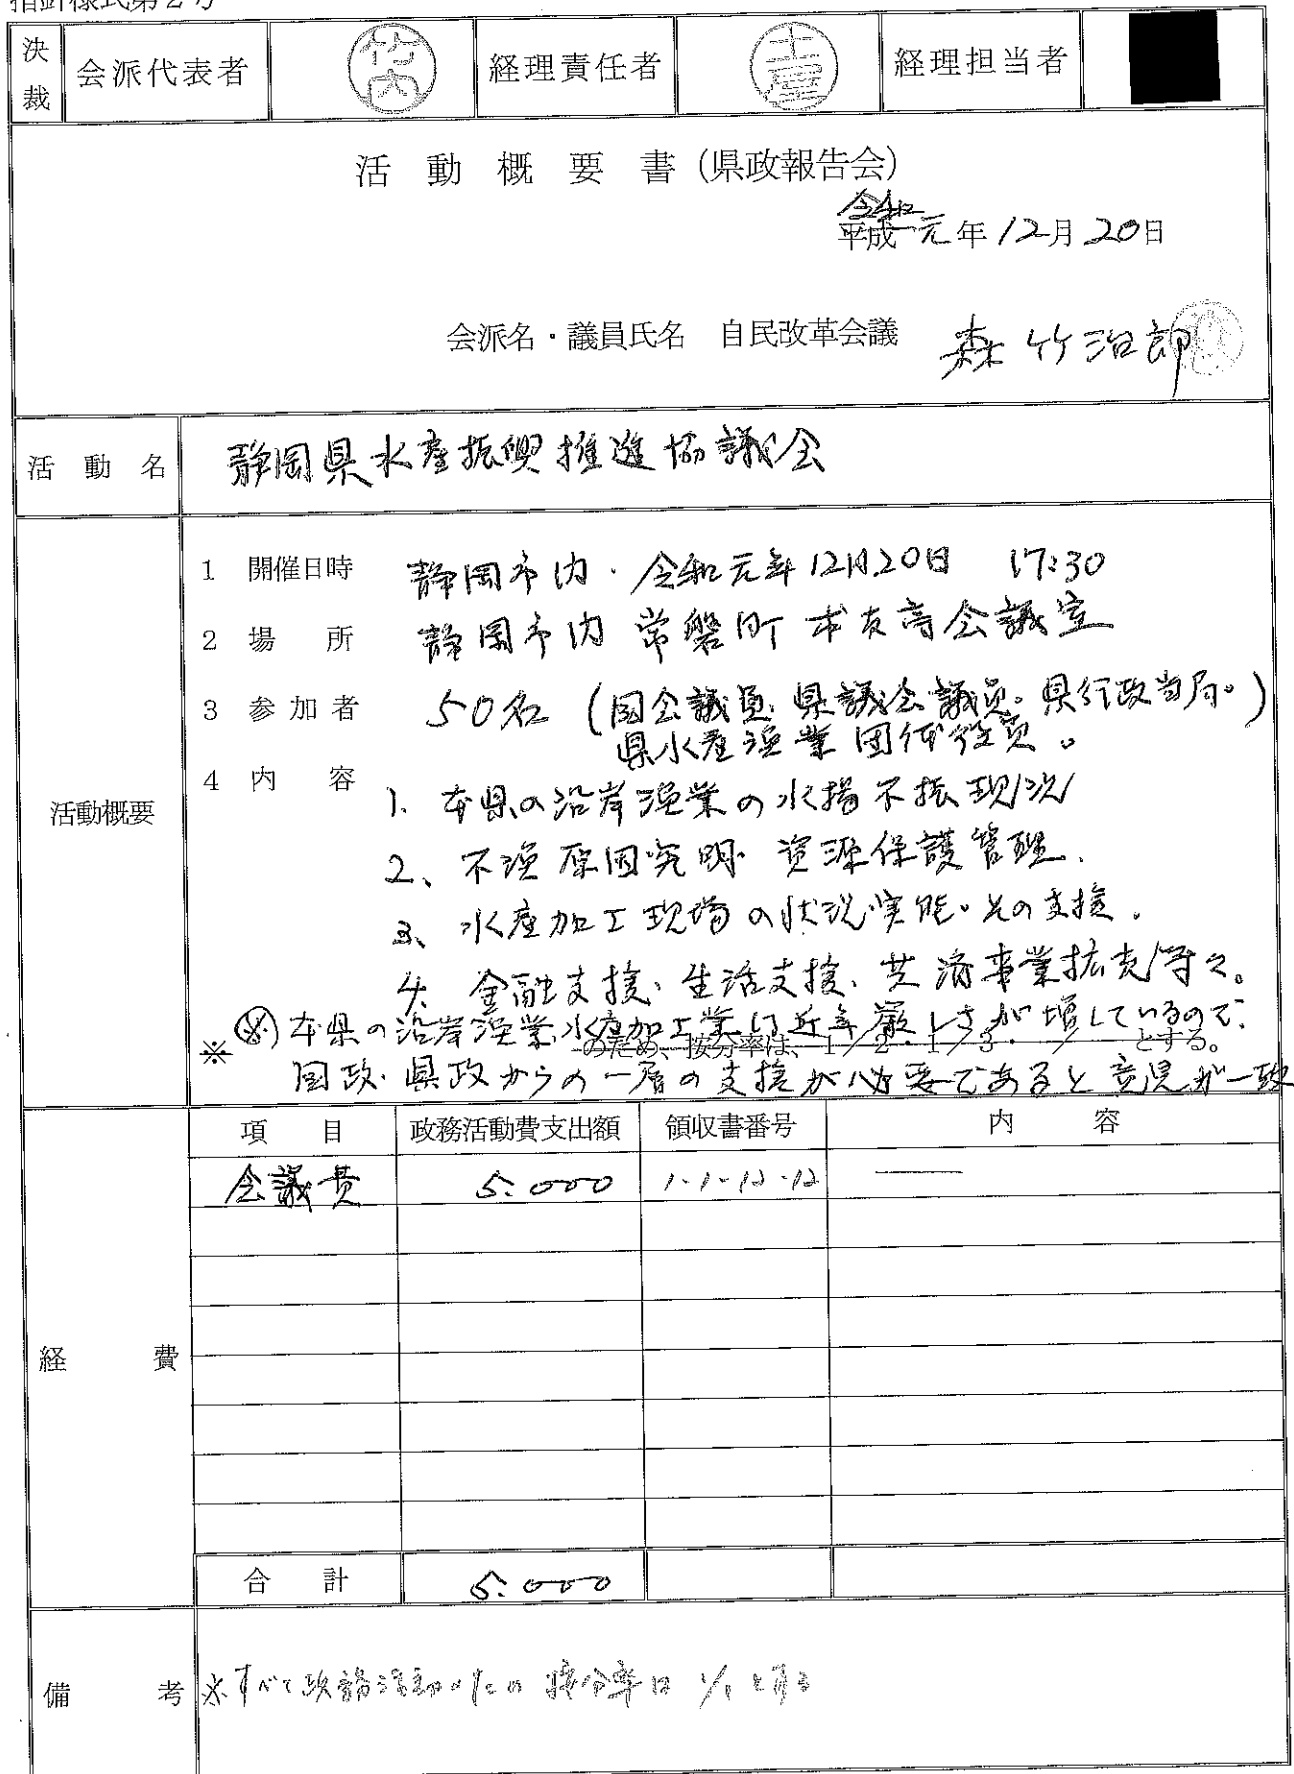 指針様式第2号
決裁 会派代表者 竹内 経理責任者 土屋 経理担当者
活動概要書(県政報告会)
令和
平成元年12月20日
会派名・議員氏名 自民改革会議 森竹治郎
活動名 静岡県水産振興推進協議会
活動概要
1 開催日時 静岡市内・令和元年12月20日 17:30
2 場所 静岡市内 常磐町 本友商会議室
3 参加者 50名(国会議員、県議会議員、県行政当局。)
県水産漁業団体役員。
4 内容
1. 本県の沿岸漁業の水揚不振現況
2、不漁原因究明・資源保護管理.
3、水産加工現場の状況実態・その支援.
4. 金融支援、生活支援、共済事業拡充/等々。
※) 本県の沿岸漁業、水産加工業は近年厳しさが増しているので、
※ のため、按分率は、1/2・1/3・ / とする。
国政・県政からの一層の支援が必要であると意見が一致
経費
項目 政務活動費支出額 領収書番号 内容
会議費 5.000 1-1-12-12
合計 5.000
備考 ※すべて政務活動のため 按分率は 1/1とする